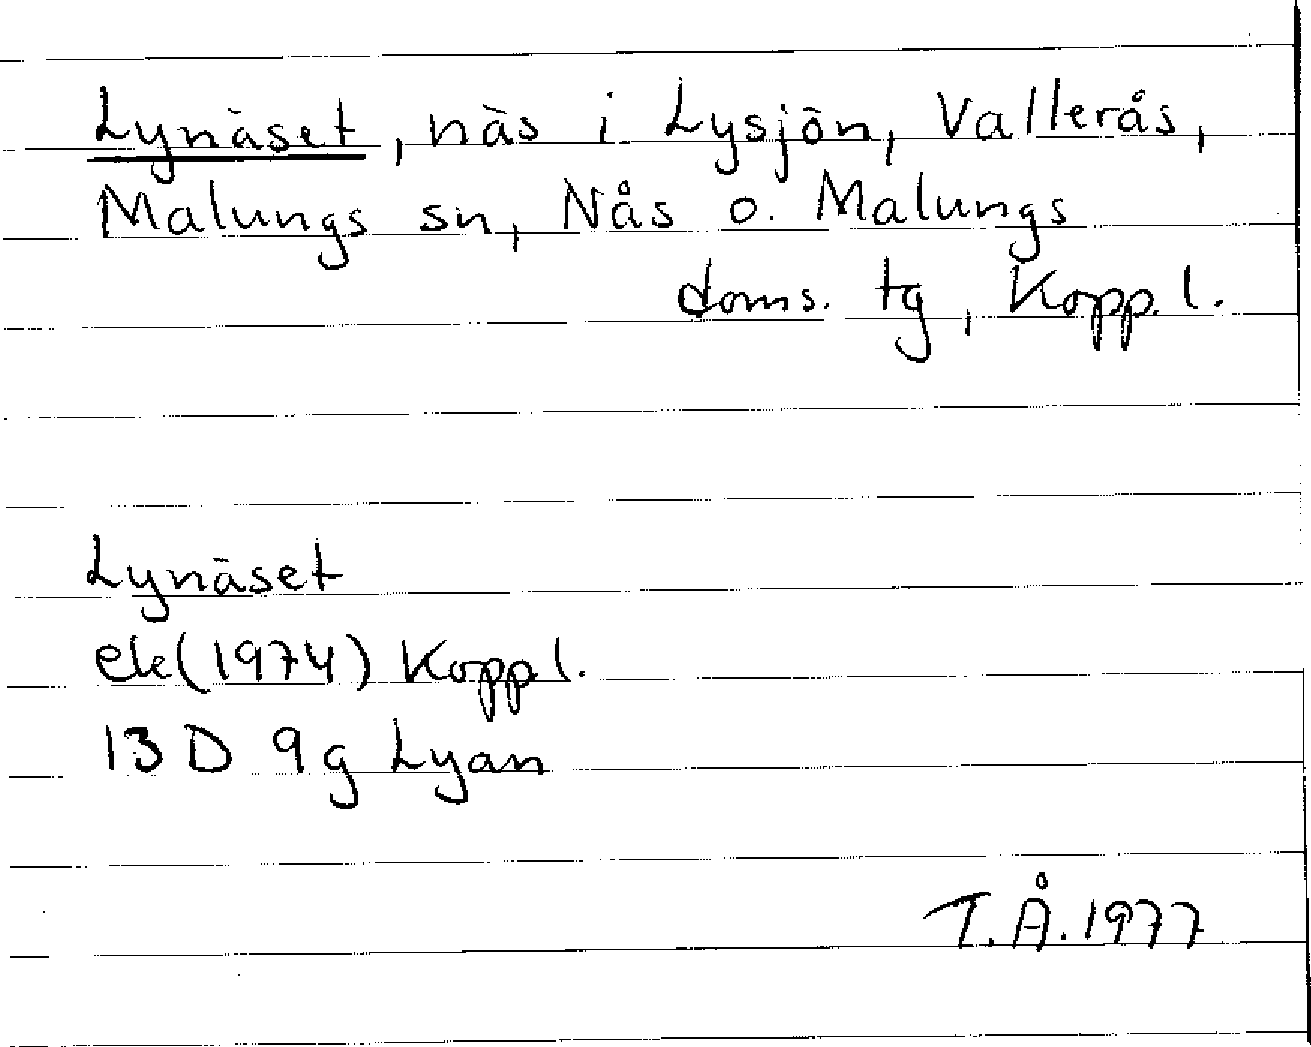 Lynäset, näs i Lysjön, Vallerås,
Malungs sn, Nås o. Malungs
doms. tg, Kopp. l.
Lynäset
ek(1974) Koppl.
13 D 9g Lyan
T.Å.1977